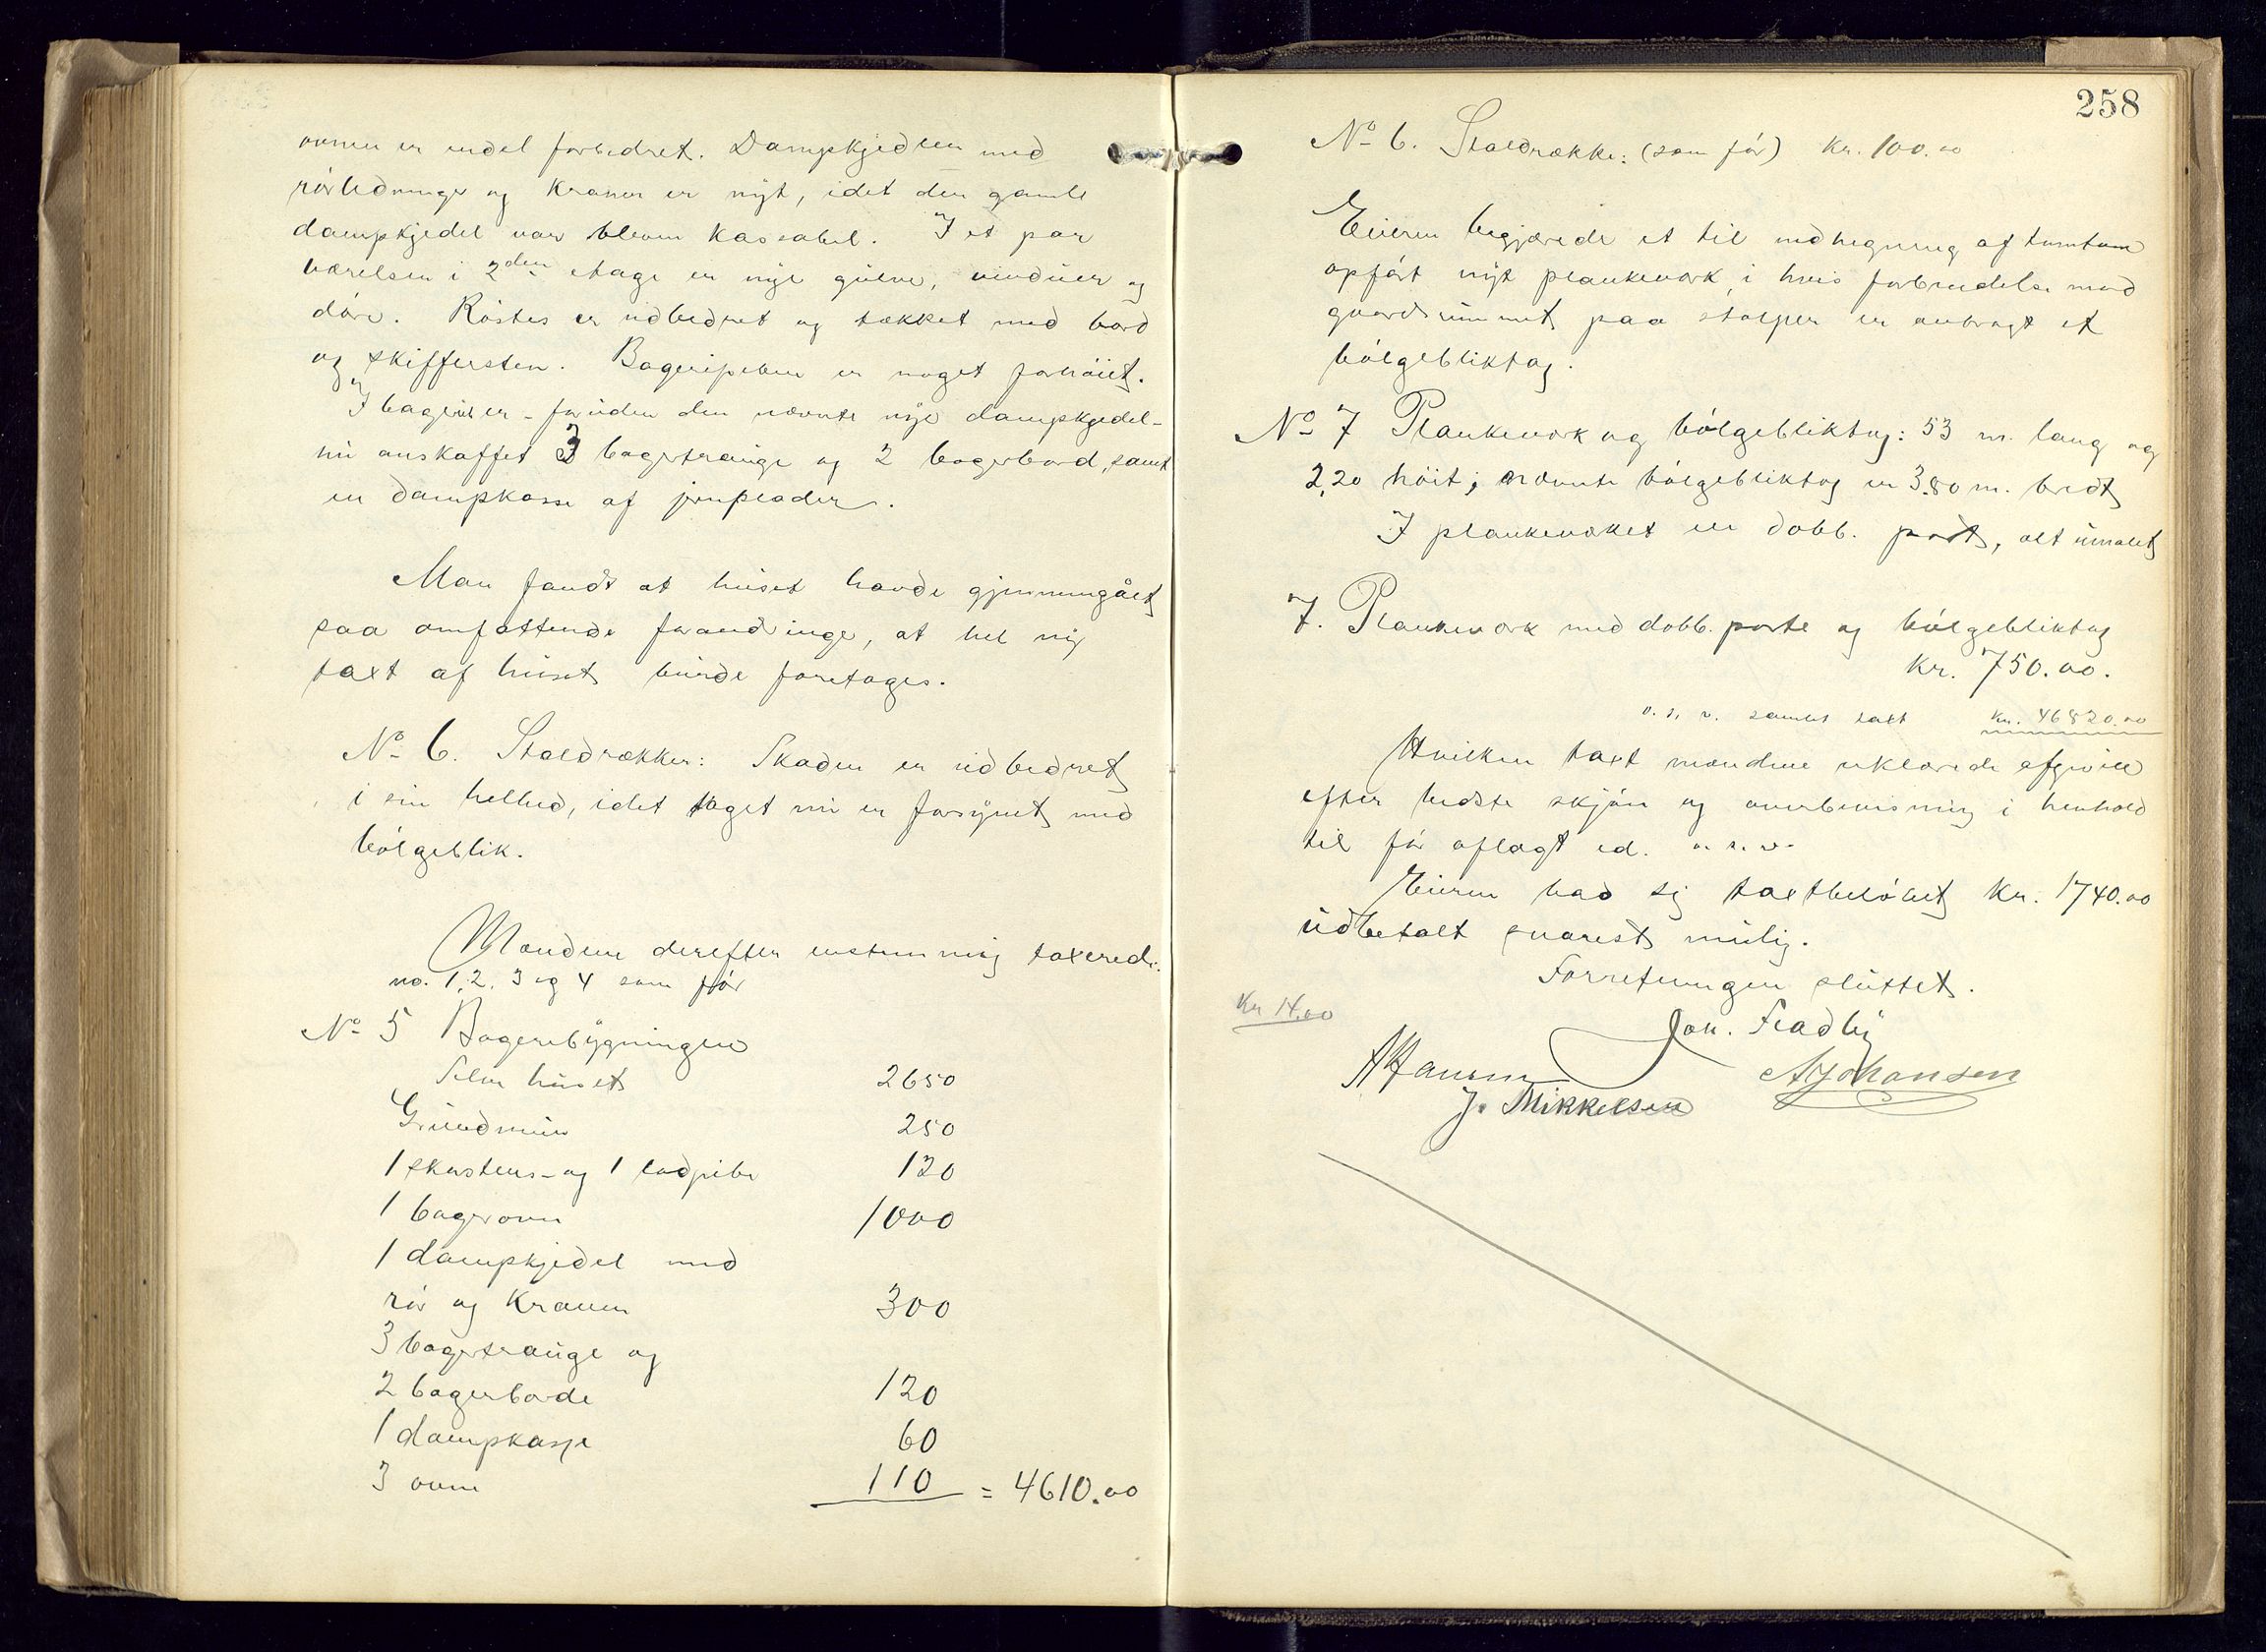 ovnen er endel forbedret. Dampkjedlen med
rørledninger og Kraner er nyt, idet den gamle
dampkjedel var bleven kassabel. I et par
værelser i 2den etage er nye gulve, vinduer og
døre. Røstes er udbedret og tækket med bord
og skiffersten. Bageripiben er noget forhøiet.
I bageriet er - foruden den nævnte nye dampkjedel -
nu anskaffet 3 bagertrauge og 2 bagerbord, samt
en dampkasse af jernplader.
Man fandt at huset havde gjennemgået
saa omfattende forandringe, at hel ny
taxt af huset burde foretages.
No 6. Staldrækken: Skaden er udbedret
i sin helhed, idet taget nu er forsynet med
bølgeblik.
Mændene derefter enstemmig taxerede:
no. 1, 2, 3 og 4 som før
No 5 Bageribygningen
Selve huset 2650
Grundmur 250
1 skorstens- og 1 ladpibe 120
1 bagerovn 1000
1 dampkjedel med
rør og Kraner 300
3 bagertrauge og
2 bagerborde 120
1 dampkasse 60
3 ovne 110 = 4610.00
258
No 6. Staldrække: (som før) Kr. 100.00
Eieren begjærede et til indhegning af tomten
opført nyt plankeværk, i hvis forbindelse med
gaardsrummet paa stolper er anbragt et
bølgebliktag.
No 7 Plankeværk og bølgebliktag: 53 m. lang og
2,20 høit; nævnte bølgebliktag er 3.80 m. bredt
I plankeværket en dobb. port, alt umalet
7. Plankeværk med dobb. porte og bølgebliktag
Kr. 750.00.
o. s. v. samlet taxt Kr. 46820.00
Hvilken taxt mændene erklærede afgiven
efter bedste skjøn og overbevisning i henhold
til før aflagt ed. o. s. v.
Eieren bad sig taxtbeløbet Kr. 1740.00
udbetalt snarest mulig.
Forretningen sluttet.
Kr 14.00
Joh. Fladby
A Hansen A Johansen
J. Mikkelsen